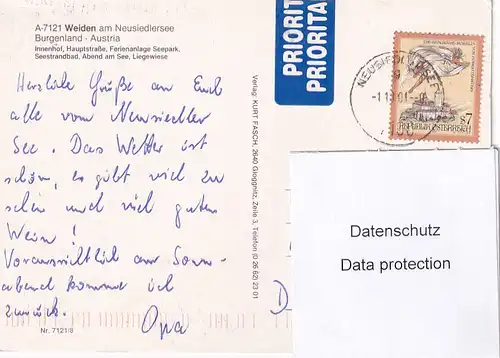 A-7121 Weiden am Neusiedlersee
Burgenland - Austria
Innenhof, Hauptstraße, Ferienanlage Seepark,
Seestrandbad, Abend am See, Liegewiese
Herzliche Grüße an Euch
alle vom Neusiedler
See. Das Wetter ist
schön, es gibt viel zu
sehen und viel guten
Wein!
Voraussichtlich am Sonn-
abend komme ich
zurück.
Opa
Nr. 7121/8
Verlag KURT FASCH, 2640 Gloggnitz, Zeile 3, Telefon (0 26 62) 23 01
PRIORIT
PRIORITA
NEUSIEDL
7100
S7
REPUBLIK ÖSTERREICH
D
Datenschutz
Data protection